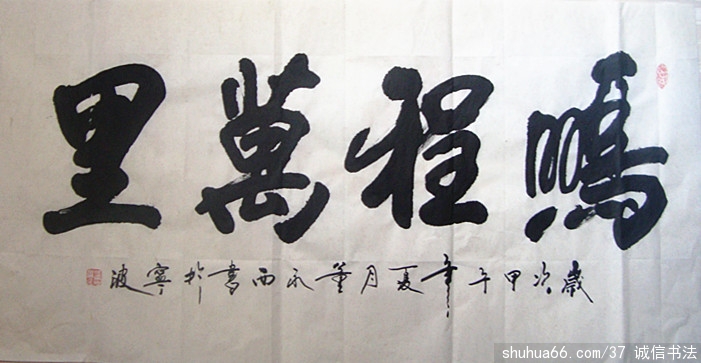 鵬程萬里
歲次甲午年夏月董西書於寧波
shuhua66.com/37 诚信书法